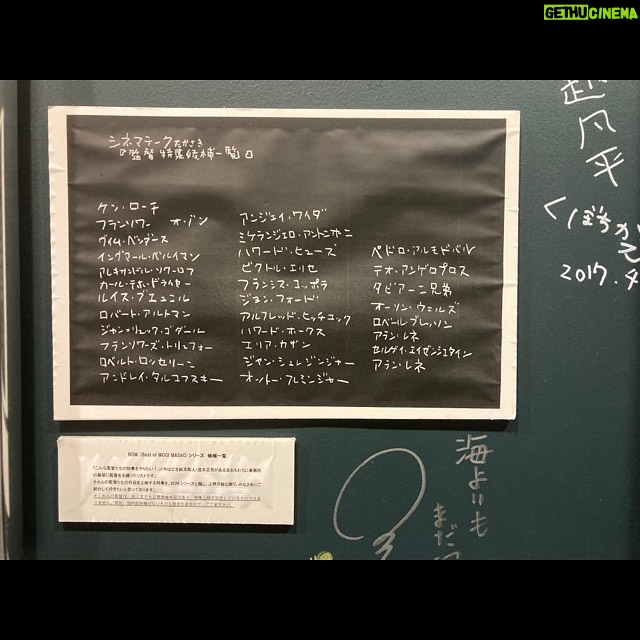 GETHUCINEMA
シネマテークたかさき
『監督特集候補一覧』
ケン・ローチ
フランソワ・オゾン
ヴィム・ベンダース
イングマール・ベルイマン
アレキサンドル・ソクーロフ
カール・テホ・ドライヤー
ルイス・ブニュエル
ロバート・アルトマン
ジャン・リュック・ゴダール
フランソワーズ・トリュフォー
ロベルト・ロッセリーニ
アンドレイ・タルコフスキー
アンジェイ・ワイダ
ミケランジェロ・アントニオーニ
ハワード・ヒューズ
ビクトル・エリセ
フランシス・コッポラ
ジョン・フォード
アルフレッド・ヒッチコック
ハワード・ホークス
エリア・カザン
ジャン・シュレジンジャー
オットー・プレミンジャー
ペドロ・アルモドバル
テオ・アンゲロプロス
タビアーニ兄弟
オーソン・ウェルズ
ロベール・ブレッソン
アラン・レネ
セルゲイ・エイゼンシュタイン
アラン・レネ
BOM (Best of MOGI MASAO) シリーズ 候補一覧
2017.
海よりも
まだ